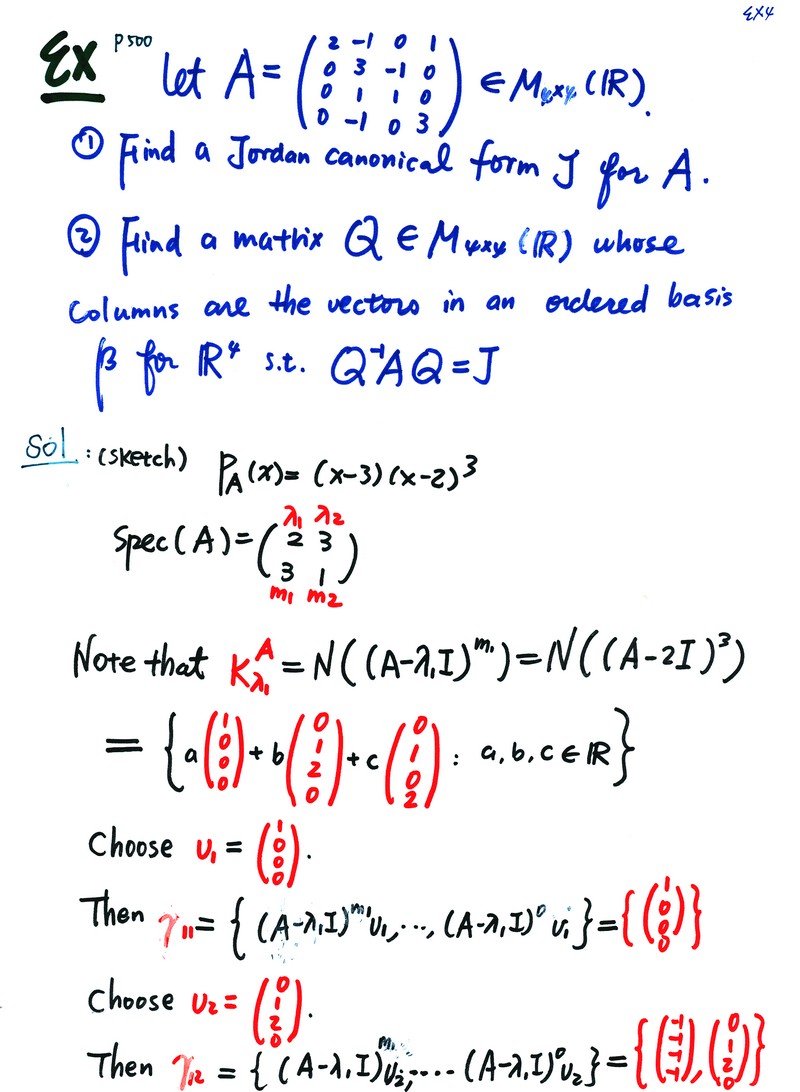 EX4
Ex P500 Let A = ( 2 -1 0 1 ; 0 3 -1 0 ; 0 1 1 0 ; 0 -1 0 3 ) ∈ M₄ₓ₄(ℝ).
① Find a Jordan canonical form J for A.
② Find a matrix Q ∈ M₄ₓ₄(ℝ) whose
columns are the vectors in an ordered basis
β for ℝ⁴ s.t. Q⁻¹AQ = J
Sol : (sketch) P_A(x) = (x-3)(x-2)³
λ₁ λ₂
Spec(A) = ( 2 3 ; 3 1 )
m₁ m₂
Note that K^A_λ₁ = N((A-λ₁I)^m₁) = N((A-2I)³)
= { a(1 0 0 0) + b(0 1 2 0) + c(0 1 0 2) : a, b, c ∈ ℝ }
Choose υ₁ = (1 0 0 0).
Then γ₁₁ = { (A-λ₁I)^m₁ υ₁, ..., (A-λ₁I)⁰ υ₁ } = { (1 0 0 0) }
Choose υ₂ = (0 1 2 0).
Then γ₁₂ = { (A-λ₁I)^m₁ υ₂, ..... (A-λ₁I)⁰ υ₂ } = { (-1 -1 -1 -1), (0 1 2 0) }